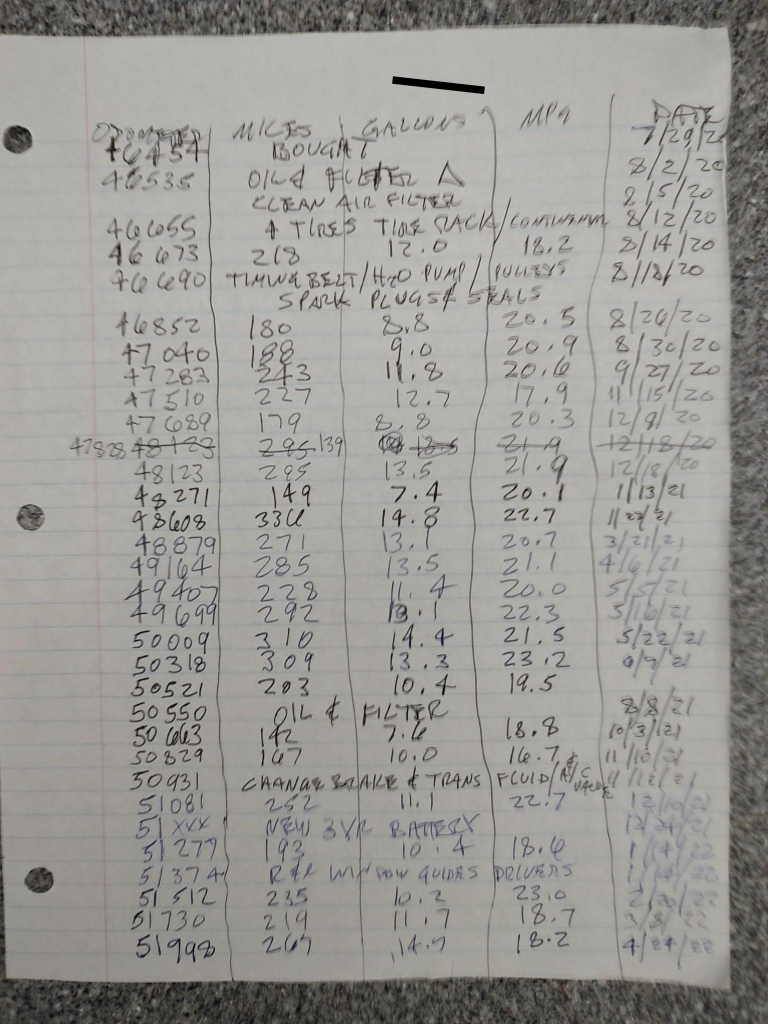 ODOMETER MILES GALLONS MPG DATE
46454 BOUGHT 7/29/20
46535 OIL & FILTER Δ 8/2/20
CLEAN AIR FILTER 8/5/20
46655 4 TIRES TIRE RACK/CONTINENTAL 8/12/20
46673 218 12.0 18.2 8/14/20
46690 TIMING BELT/H2O PUMP/PULLEYS 8/18/20
SPARK PLUGS & SEALS
46852 180 8.8 20.5 8/26/20
47040 188 9.0 20.9 8/30/20
47283 243 11.8 20.6 9/27/20
47510 227 12.7 17.9 11/15/20
47689 179 8.8 20.3 12/8/20
47828 48123 295 139 13.5 21.9 12/18/20
48123 295 13.5 21.9 12/18/20
48271 149 7.4 20.1 1/13/21
48608 336 14.8 22.7
48879 271 13.1 20.7 3/21/21
49164 285 13.5 21.1 4/6/21
49407 228 11.4 20.0 5/5/21
49699 292 13.1 22.3 5/16/21
50009 310 14.4 21.5 5/22/21
50318 309 13.3 23.2 6/7/21
50521 203 10.4 19.5
50550 OIL & FILTER 8/8/21
50663 142 7.6 18.8 10/3/21
50829 167 10.0 16.7 11/10/21
50931 CHANGE BRAKE & TRANS FLUID/A/C & VALVE 11/12/21
51081 252 11.1 22.7 12/10/21
51XXX NEW 3YR BATTERY 12/24/21
51277 193 10.4 18.6 1/14/22
51374 R&R WINDOW GUIDES DRIVERS 1/14/22
51512 235 10.2 23.0 2/20/22
51730 219 11.7 18.7 3/8/22
51998 267 14.7 18.2 4/24/22